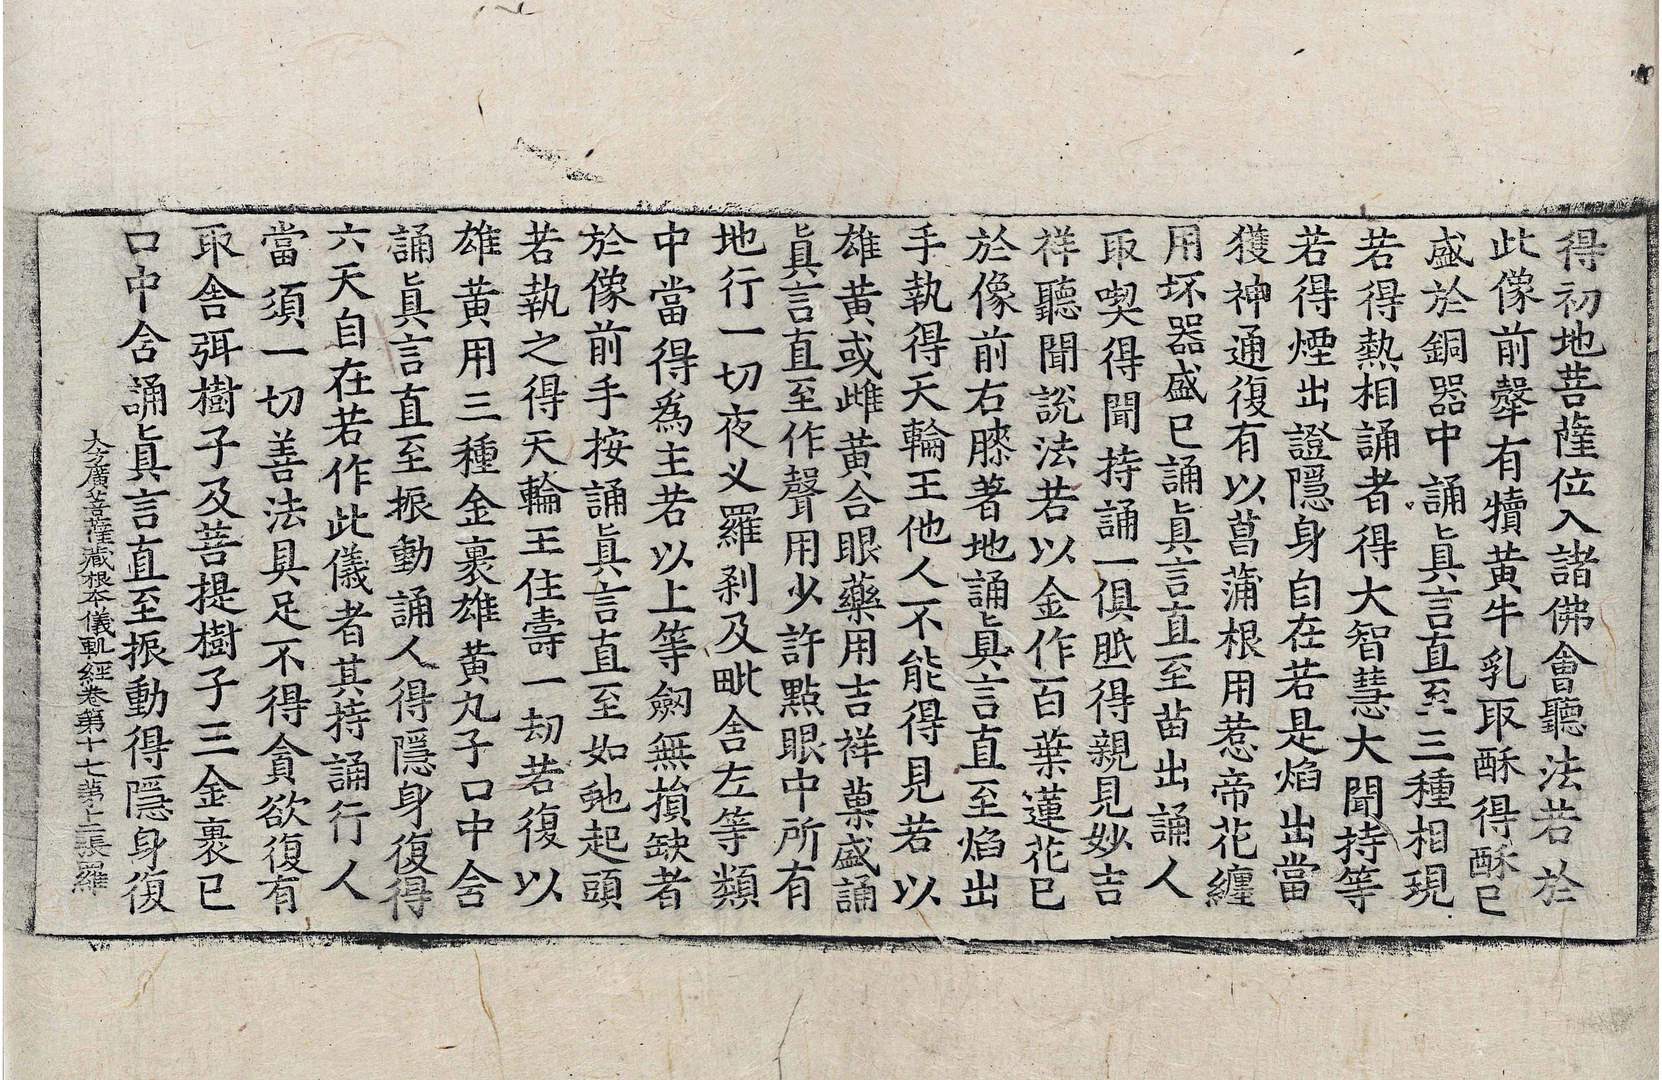 得初地菩薩位入諸佛會聽法若於
此像前犛有犢黃牛乳取酥得酥已
盛於銅器中誦眞言直至三種相現
若得熱相誦者得大智慧大聞持等
若得煙出證隱身自在若是焰出當
獲神通復有以菖蒲根用惹帝花纏
用坏器盛已誦眞言直至苗出誦人
取喫得聞持誦一俱胝得親見妙吉
祥聽聞說法若以金作百葉蓮花已
於像前右膝著地誦眞言直至焰出
手執得天輪王他人不能得見若以
雄黃或雌黃合眼藥用吉祥菓盛誦
眞言直至作聲用少許點眼中所有
地行一切夜叉羅刹及毗舍左等類
中當得為主若以上等劒無損缺者
於像前手按誦眞言直至如虵起頭
若執之得天輪王住壽一劫若復以
雄黃用三種金裹雄黃丸子口中含
誦眞言直至振動誦人得隱身復得
六天自在若作此儀者其持誦行人
當須一切善法具足不得貪欲復有
取舍弭樹子及菩提樹子三金裹已
口中含誦眞言直至振動得隱身復
大方廣菩薩藏根本儀軌經卷第十七 第十張 羅